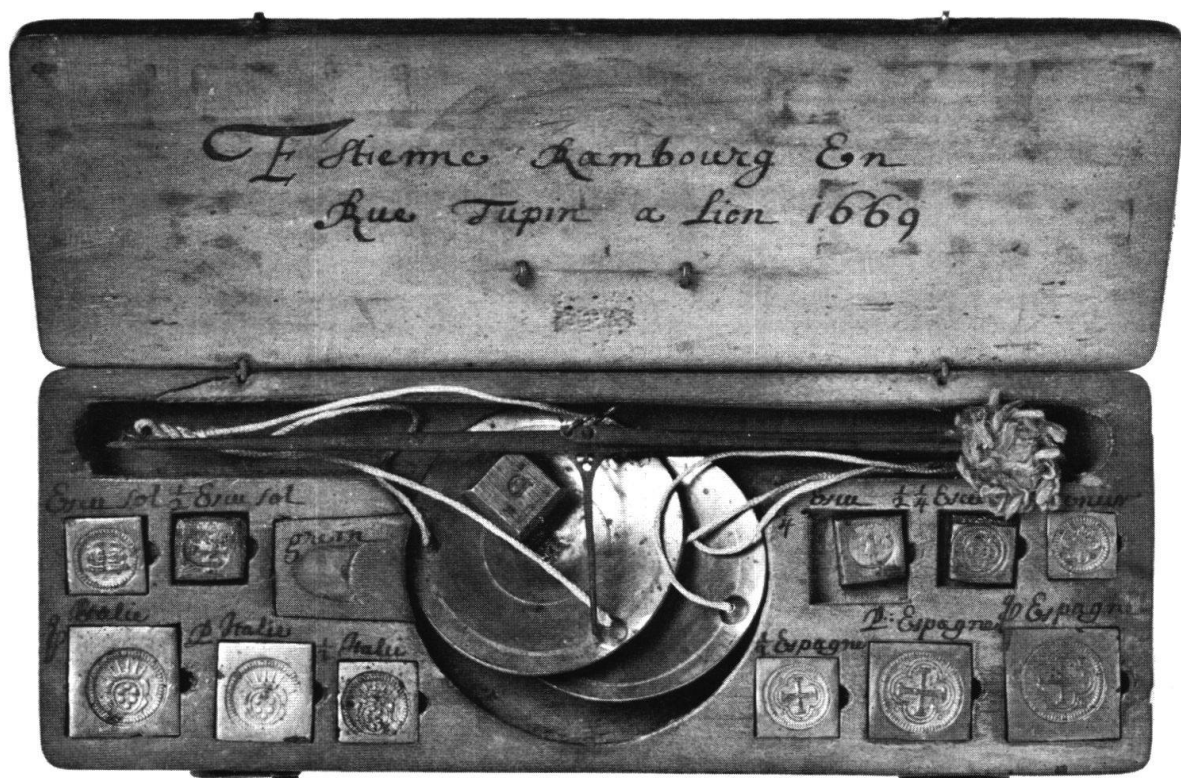 Estienne Rambourg En
Rue Tupin a Lion 1669
Escu sol ½ Escu sol
grain
Escu ½ ¼ Escu
4
q Italie P Italie ½ Italie
½ Espagne P: Espagne qo Espagne